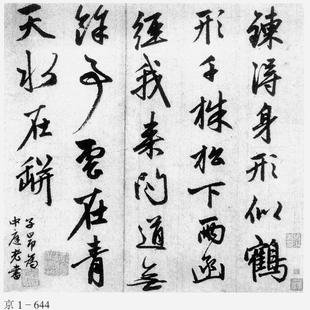 鍊得身形似鶴
形千株松下兩函
經我来問道無
餘事雲在青
天水在缾
子昂為
中庭老書
京1-644